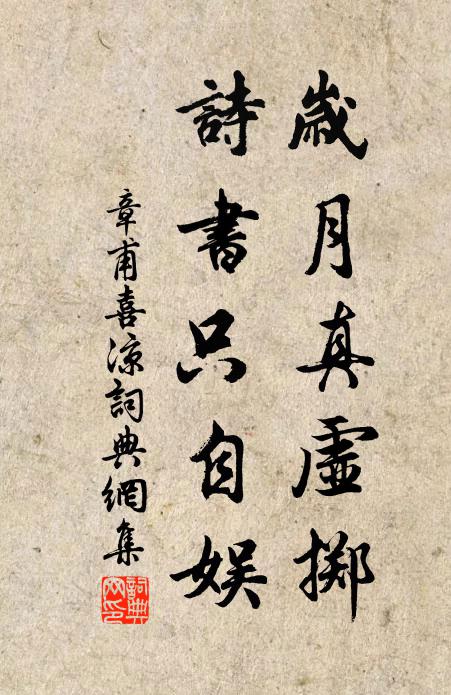 歲月真虛擲
詩書只自娛
章甫喜涼詞典網集
詞典網印